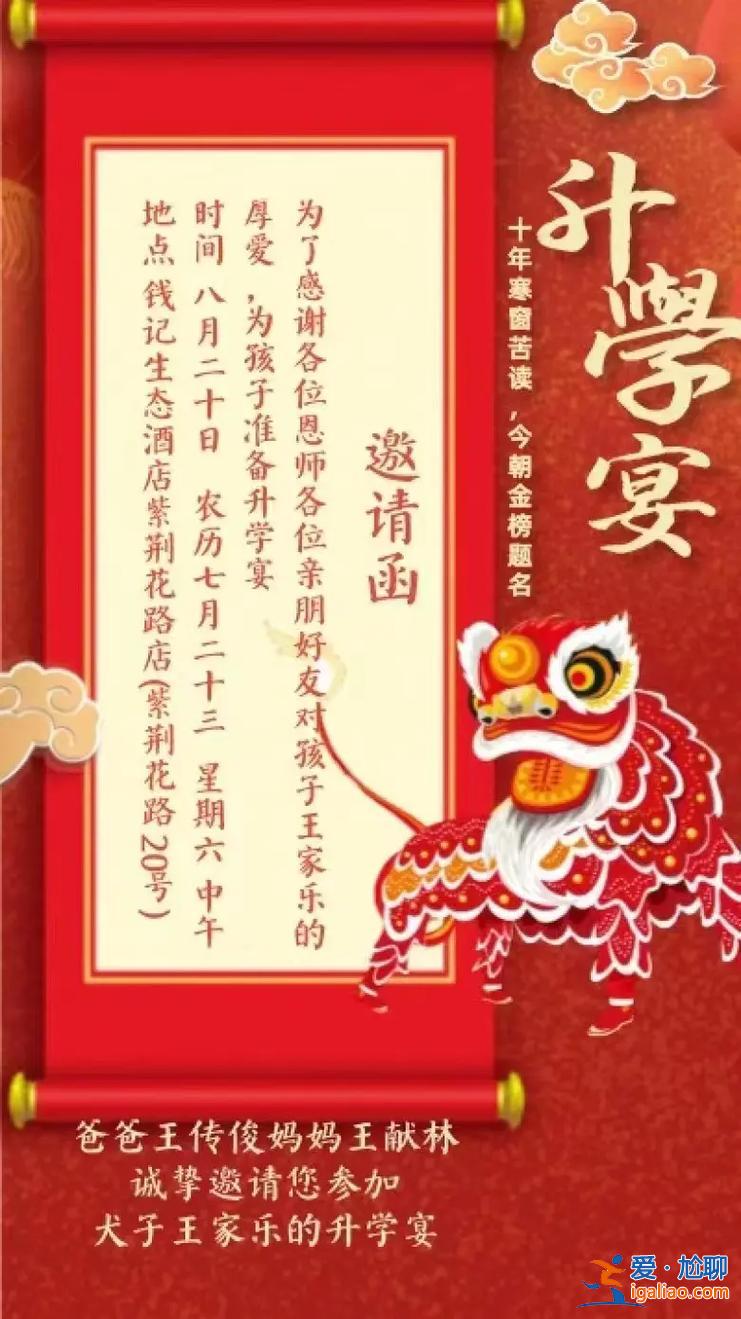 升學宴
十年寒窗苦读,今朝金榜题名
邀请函
为了感谢各位恩师各位亲朋好友对孩子王家乐的
厚爱,为孩子准备升学宴
时间 八月二十日 农历七月二十三 星期六 中午
地点 钱记生态酒店紫荆花路店(紫荆花路20号)
爸爸王传俊妈妈王献林
诚挚邀请您参加
犬子王家乐的升学宴
爱·尬聊
igaliao.com